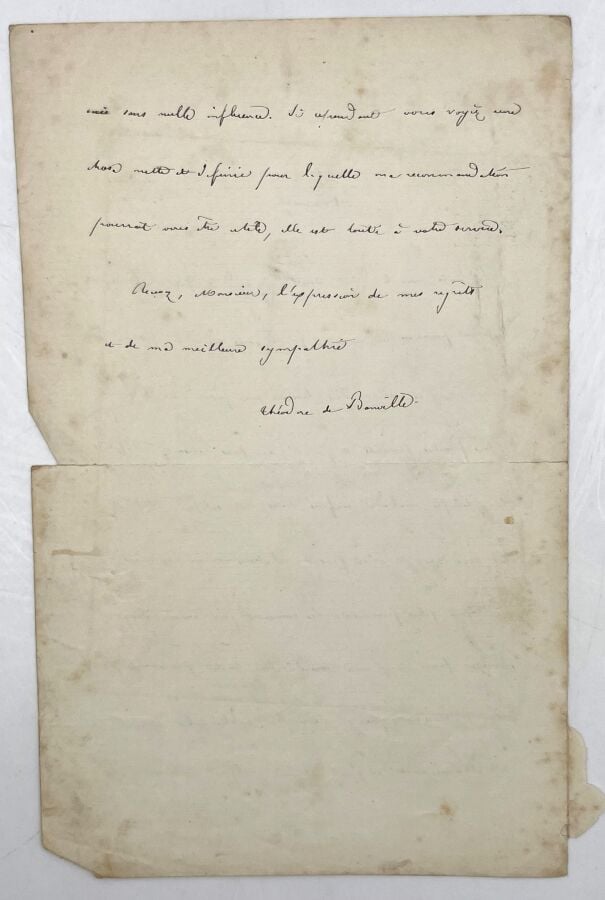 sans nulle influence. Si cependant vous voyiez une
chose nette et définie pour laquelle ma recommandation
pourrait vous être utile, elle est toute à votre service.
Recevez, Monsieur, l'expression de mes regrets
et de ma meilleure sympathie
Théodore de Banville.